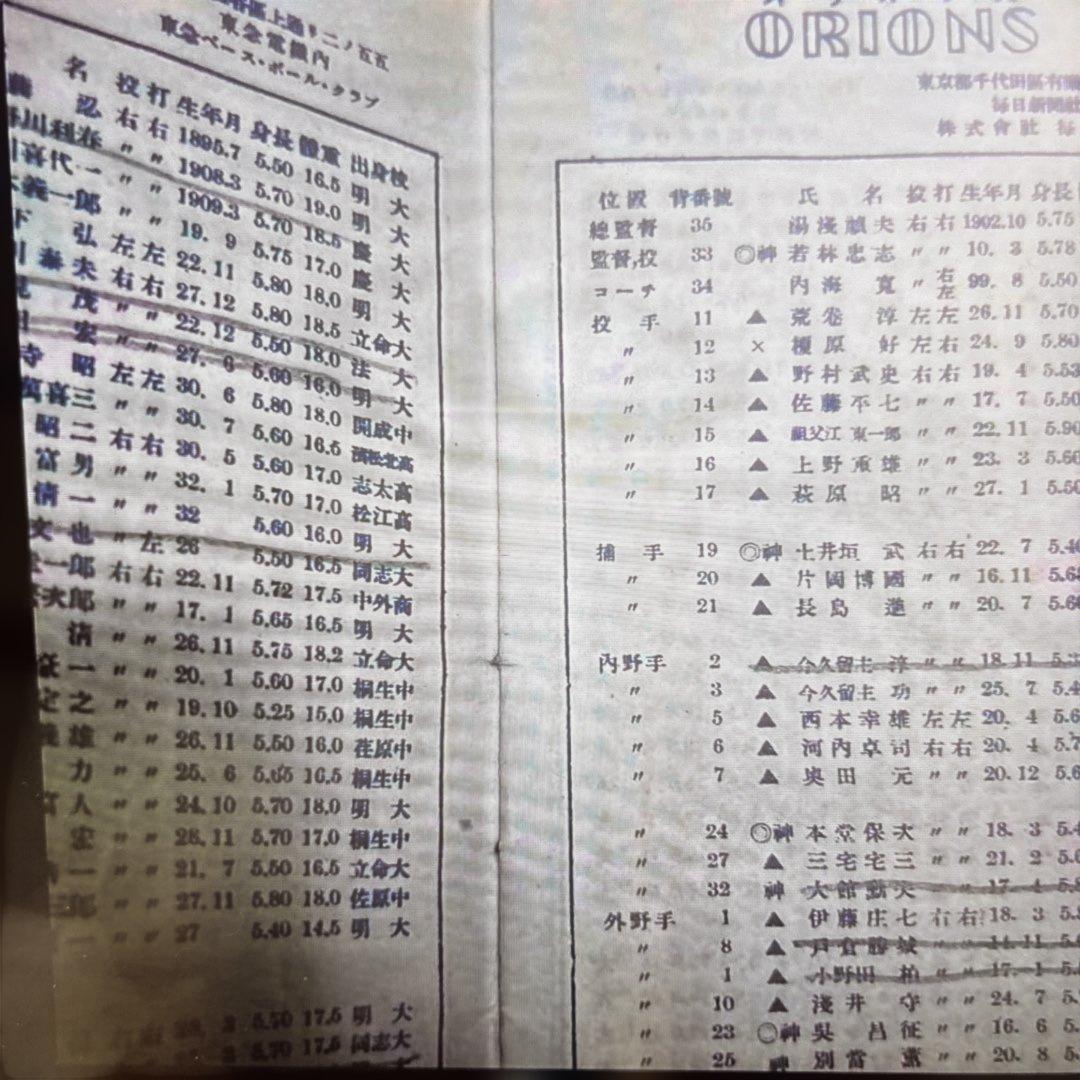 東急電機内
東急ベース・ボール・クラブ
名 投 打 生年月 身長 體重 出身校
忍 右 右 1895.7 5.50 16.5 明 大
川利春 〃 〃 1908.3 5.70 19.0 明 大
喜代一 〃 〃 1909.3 5.70 18.5 慶 大
義一郎 〃 〃 19. 9 5.75 17.0 慶 大
下 弘 左 左 22.11 5.80 18.0 明 大
川 泰夫 右 右 27.12 5.80 18.5 立命大
茂 〃 〃 22.12 5.50 18.0 法 大
宏 〃 〃 27. 6 5.60 16.0 明 大
寺 昭 左 左 30. 6 5.80 18.0 開成中
萬喜三 〃 〃 30. 7 5.60 16.5 濱松北高
昭二 右 右 30. 5 5.60 17.0 志太高
富男 〃 〃 32. 1 5.70 17.0 松江高
清一 〃 〃 32 5.60 16.0 明 大
文也 〃 左 26 5.50 16.5 同志大
一郎 右 右 22.11 5.72 17.5 中外商
次郎 〃 〃 17. 1 5.65 16.5 明 大
清 〃 〃 26.11 5.75 18.2 立命大
一 〃 〃 20. 1 5.60 17.0 桐生中
定之 〃 〃 19.10 5.25 15.0 桐生中
雄 〃 〃 26.11 5.50 16.0 荏原中
力 〃 〃 25. 6 5.65 16.5 桐生中
富人 〃 〃 24.10 5.70 18.0 明 大
宏 〃 〃 28.11 5.70 17.0 桐生中
一 〃 〃 21. 7 5.50 16.5 立命大
三郎 〃 〃 27.11 5.80 18.0 佐原中
一 〃 〃 27 5.40 14.5 明 大
5.70 17.5 明 大
5.70 17.5 同志大
ORIONS
東京都千代田區有
毎日新聞社
株式會社 毎
位置 背番號 氏 名 投 打 生年月 身長
總監督 35 湯淺禎夫 右 右 1902.10 5.75
監督,投 33 ◎神 若林忠志 〃 〃 10. 3 5.78
コーチ 34 内海 寛 〃 右左 99. 8 5.50
投 手 11 ▲ 荒卷 淳 左 左 26.11 5.70
〃 12 × 榎原 好 左 右 24. 9 5.80
〃 13 ▲ 野村武史 右 右 19. 4 5.53
〃 14 ▲ 佐藤平七 〃 〃 17. 7 5.50
〃 15 ▲ 祖父江 東一郎 〃 〃 22.11 5.90
〃 16 ▲ 上野重雄 〃 〃 23. 3 5.60
〃 17 ▲ 萩原 昭 〃 〃 27. 1 5.50
捕 手 19 ◎神 土井垣 武 右 右 22. 7 5.40
〃 20 ▲ 片岡博國 〃 〃 16.11 5.68
〃 21 ▲ 長島 進 〃 〃 20. 7 5.60
内野手 2 ▲ 今久留主 淳 〃 〃 18.11 5.3
〃 3 ▲ 今久留主 功 〃 〃 25. 7 5.4
〃 5 ▲ 西本幸雄 左 左 20. 4 5.6
〃 6 ▲ 河内卓司 右 右 20. 4 5.7
〃 7 ▲ 奥田 元 〃 〃 20.12 5.6
〃 24 ◎神 本堂保次 〃 〃 18. 3 5.4
〃 27 ▲ 三宅宅三 〃 〃 21. 2 5.6
〃 32 神 大館勳夫 〃 17. 4 5.8
外野手 1 ▲ 伊藤庄七 右 右 18. 3 5.8
〃 8 ▲ 戸倉勝城 〃 〃 14.11 5.
〃 1 ▲ 小野田 柏 〃 〃 17. 1 5.
〃 10 ▲ 淺井 守 〃 〃 24. 7 5.
〃 23 ◎神 呉 昌征 〃 〃 16. 6 5.
〃 25 神 別當 薫 〃 〃 20. 8 5.